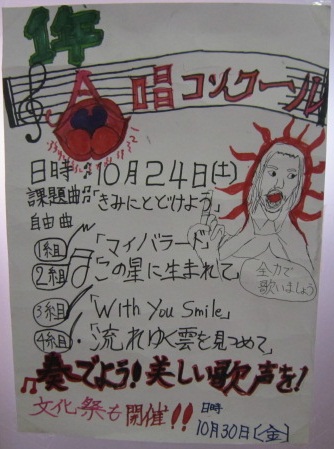 1年
合唱コンクール
日時:10月24日(土)
課題曲:「きみにとどけよう」
自由曲
1組「マイバラード」
2組「この星に生まれて」
3組「With You Smile」
4組・「流れゆく雲を見つめて」
全力で
歌いましょう
奏でよう!美しい歌声を!
文化祭も開催!!
日時
10月30日(金)